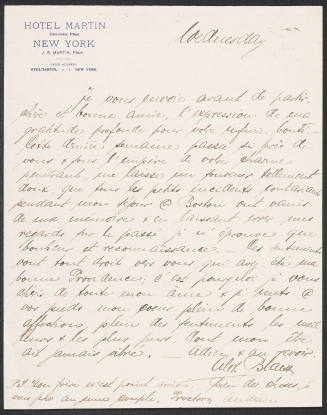 HOTEL MARTIN
University Place
NEW YORK
J. B. MARTIN, Prop.
CABLE ADDRESS
HOTELMARTIN, NEW YORK
Wednesday
Je vous envoie avant de partir,
chère et bonne amie, l'expression de ma
gratitude profonde pour votre infinie bonté.
Cette dernière semaine passée si près de
vous & sous l'empire de votre charme
pénétrant, me laisse un souvenir tellement
doux que tous les petits incidents
pendant mon séjour @ Boston ont
de ma mémoire & en laissant errer mes
regards sur le passé je n'éprouve que
bonheur et reconnaissance. Ces sentiments
vont tout droit vers vous qui avez été ma
bonne Providence; c'est pourquoi je vous
de toute mon âme & je mets @
vos pieds mon cœur plein de bonne
affection, plein des sentiments les meil
leurs & les plus purs, dont mon être
ait jamais vibré. — Adieu & au revoir.
Alex. Black
P.S. Mon frère n'est point